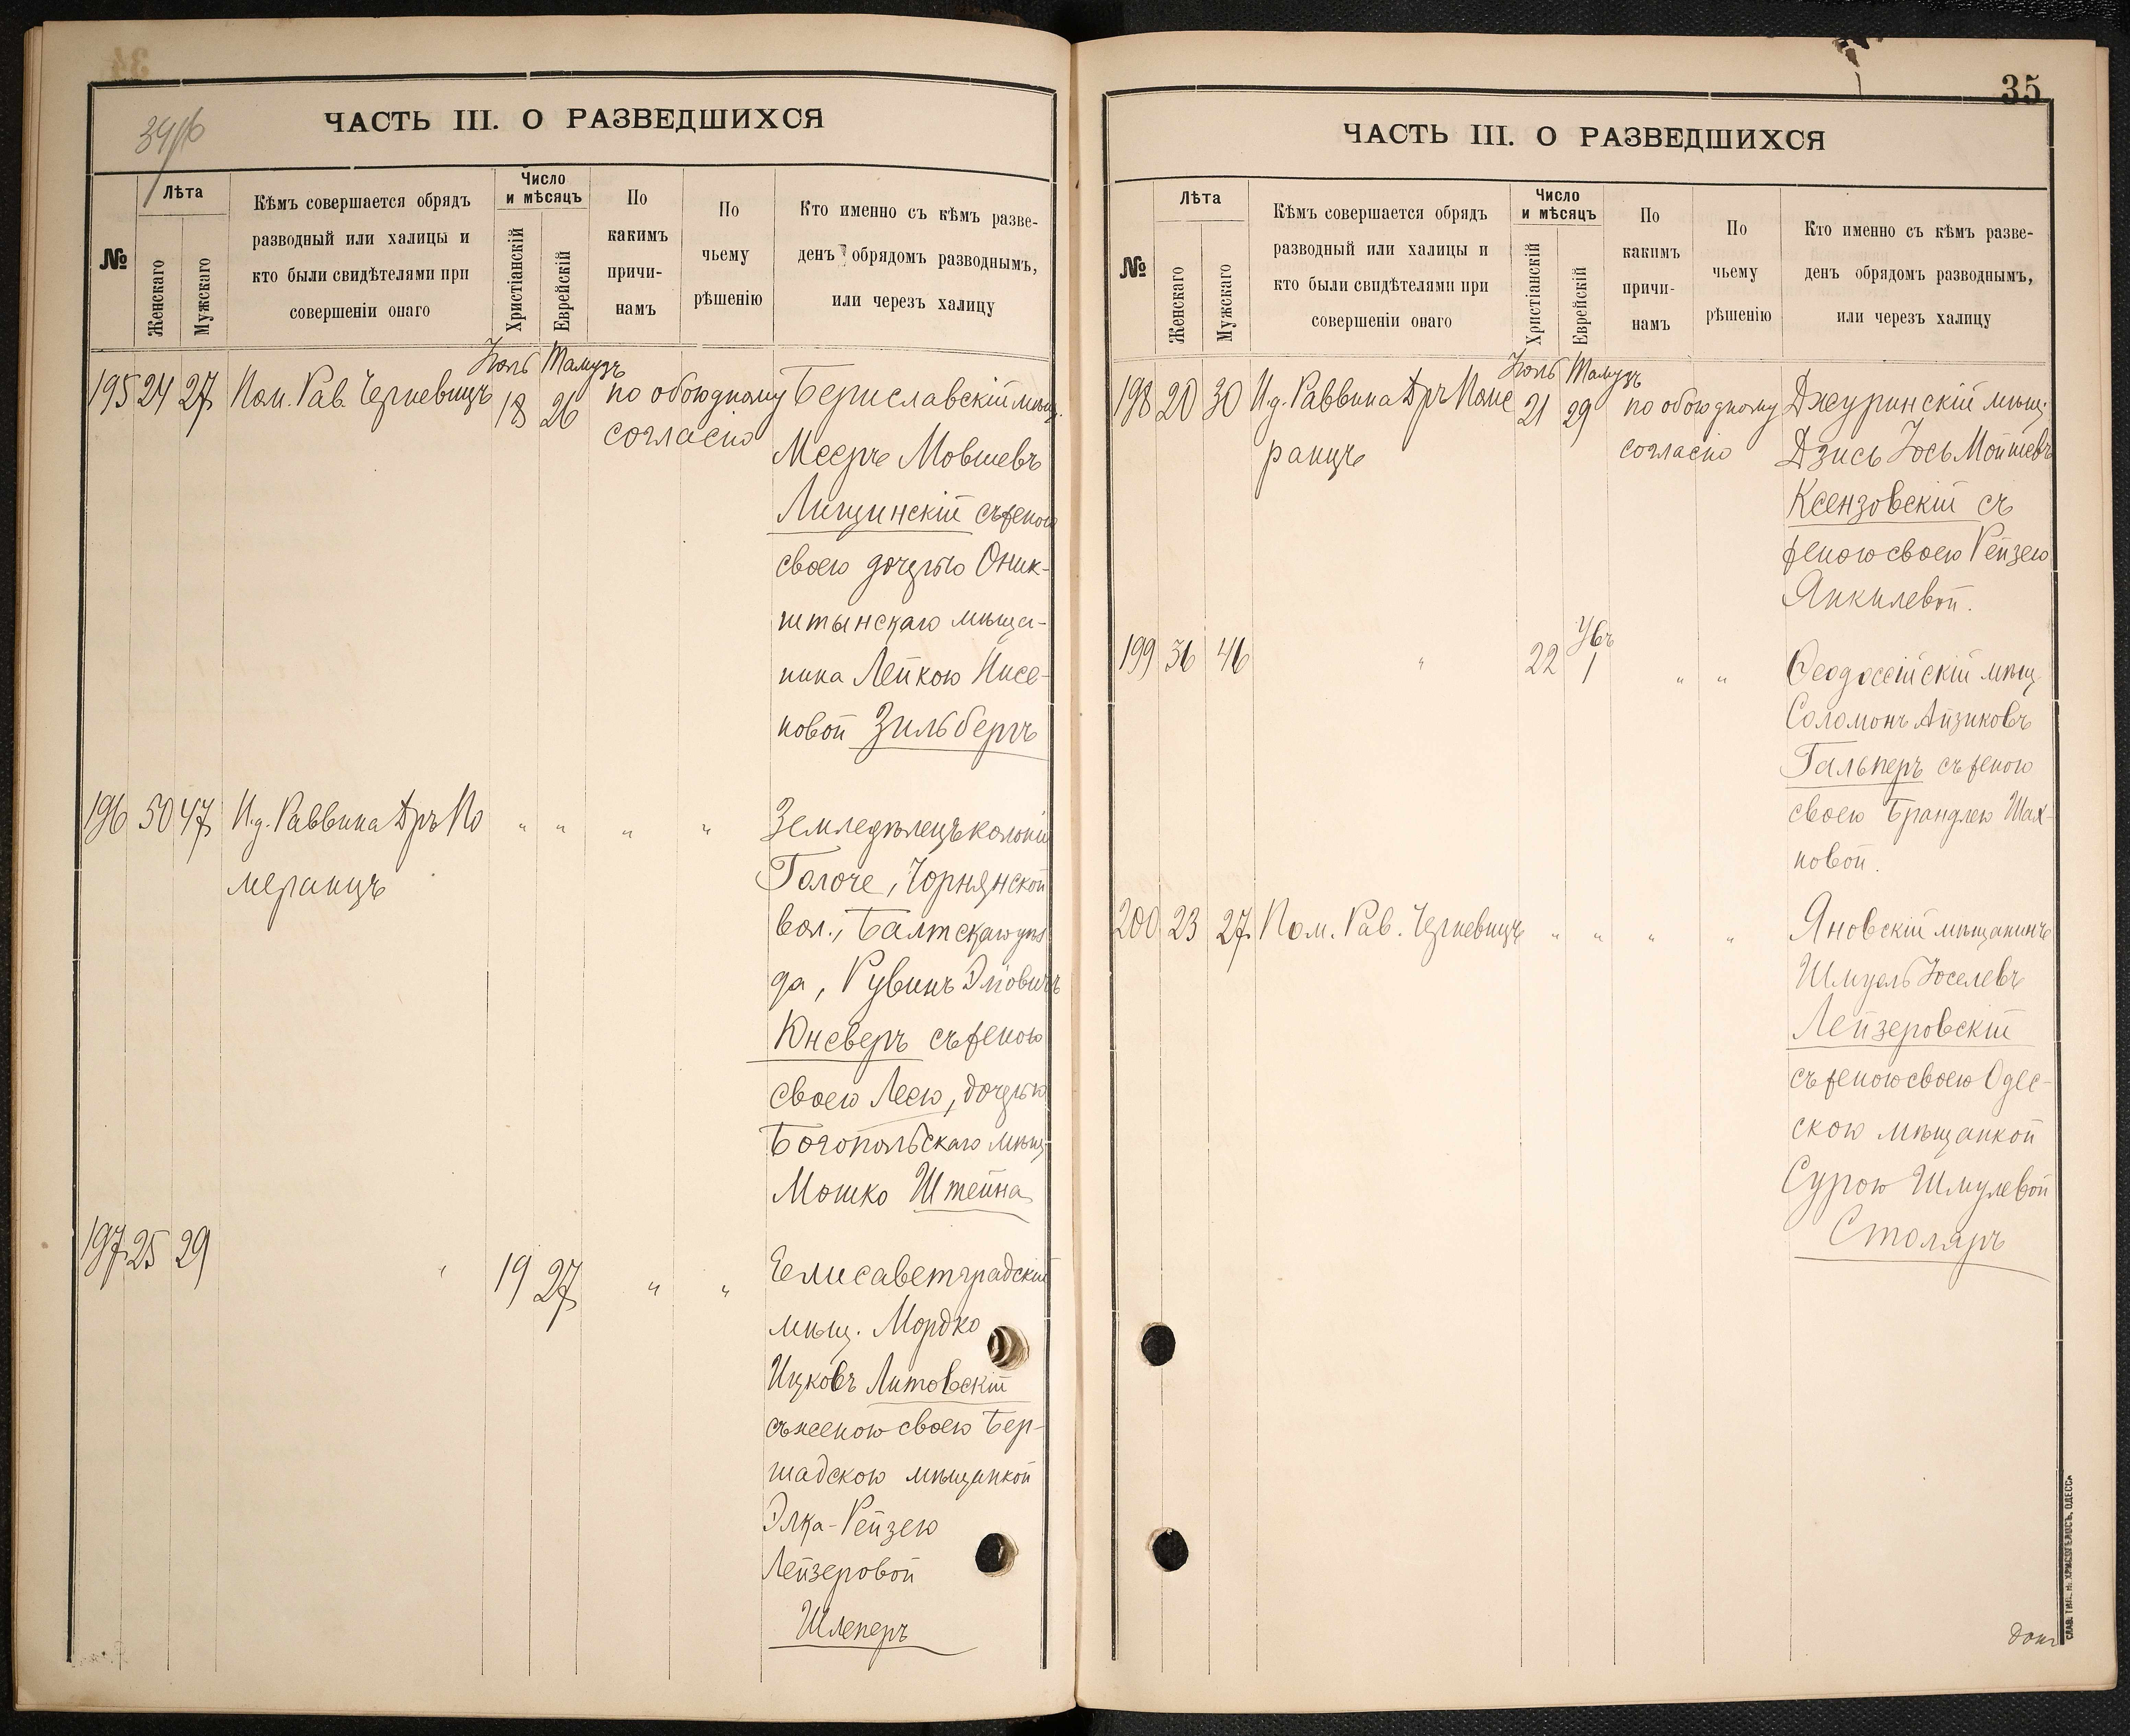 ЧАСТЬ III. О РАЗВЕДШИХСЯ
№
Лѣта
Женскаго
Мужскаго
Кѣмъ совершается обрядъ
разводный или халицы и
кто были свидѣтелями при
совершеніи онаго
Число
и мѣсяцъ
Христіанскій
Еврейскій
По
какимъ
причи-
намъ
По
чьему
рѣшенію
Кто именно съ кѣмъ разве-
денъ обрядомъ разводнымъ,
или черезъ халицу
Іюль Тамузъ
195 24 27 Пом. Рав. Черневицъ 18 26 по обоюдному Бериславскій мѣщ.
согласію
Мееръ Мовшевъ
Лищинскій съ женою
своею дочерью Оник-
штынскаго мѣща-
нина Лейкою Нисе-
новой Зильберъ
196 50 47 И.д. Раввина Д-ръ По " " " " Земледѣлецъ колоніи
меранцъ
Голоче, Чорнянской
вол., Балтскаго уѣз
да, Рувинъ Эліовичъ
Юнсверъ съ женою
своею Лею, дочерью
Богопольскаго мѣщ.
Мошко Штейна
197 25 29 " 19 27 " " Елисаветградскій
мѣщ. Мордко
Ицковъ Литовскій
съ женою своею Бер-
шадскою мѣщанкой
Элка-Рейзею
Лейзеровой
Шлеперъ
35
ЧАСТЬ III. О РАЗВЕДШИХСЯ
№
Лѣта
Женскаго
Мужскаго
Кѣмъ совершается обрядъ
разводный или халицы и
кто были свидѣтелями при
совершеніи онаго
Число
и мѣсяцъ
Христіанскій
Еврейскій
По
какимъ
причи-
намъ
По
чьему
рѣшенію
Кто именно съ кѣмъ разве-
денъ обрядомъ разводнымъ,
или черезъ халицу
Іюль Тамузъ
198 20 30 И.д. Раввина Д-ръ Поме 21 29 по обоюдному Джуринскій мѣщ.
ранцъ согласію Дзись Іось Мойшевъ
Ксензовскій съ
женою своею Рейзею
Янкилевой.
Убъ
199 36 46 " 22 1 " " Ѳеодосійскій мѣщ.
Соломонъ Айзиковъ
Гальперъ съ женою
своею Брандлею Шах-
новой.
200 23 27 Пом. Рав. Черневицъ " " " " Яновскій мѣщанинъ
Шмуль Іоселевъ
Лейзеровскій
съ женою своею Одес-
скою мѣщанкой
Сурою Шмулевой
Столяръ
СЛАВ. ТИП. Н. ХРИСОГЕЛОСЪ, ОДЕССА